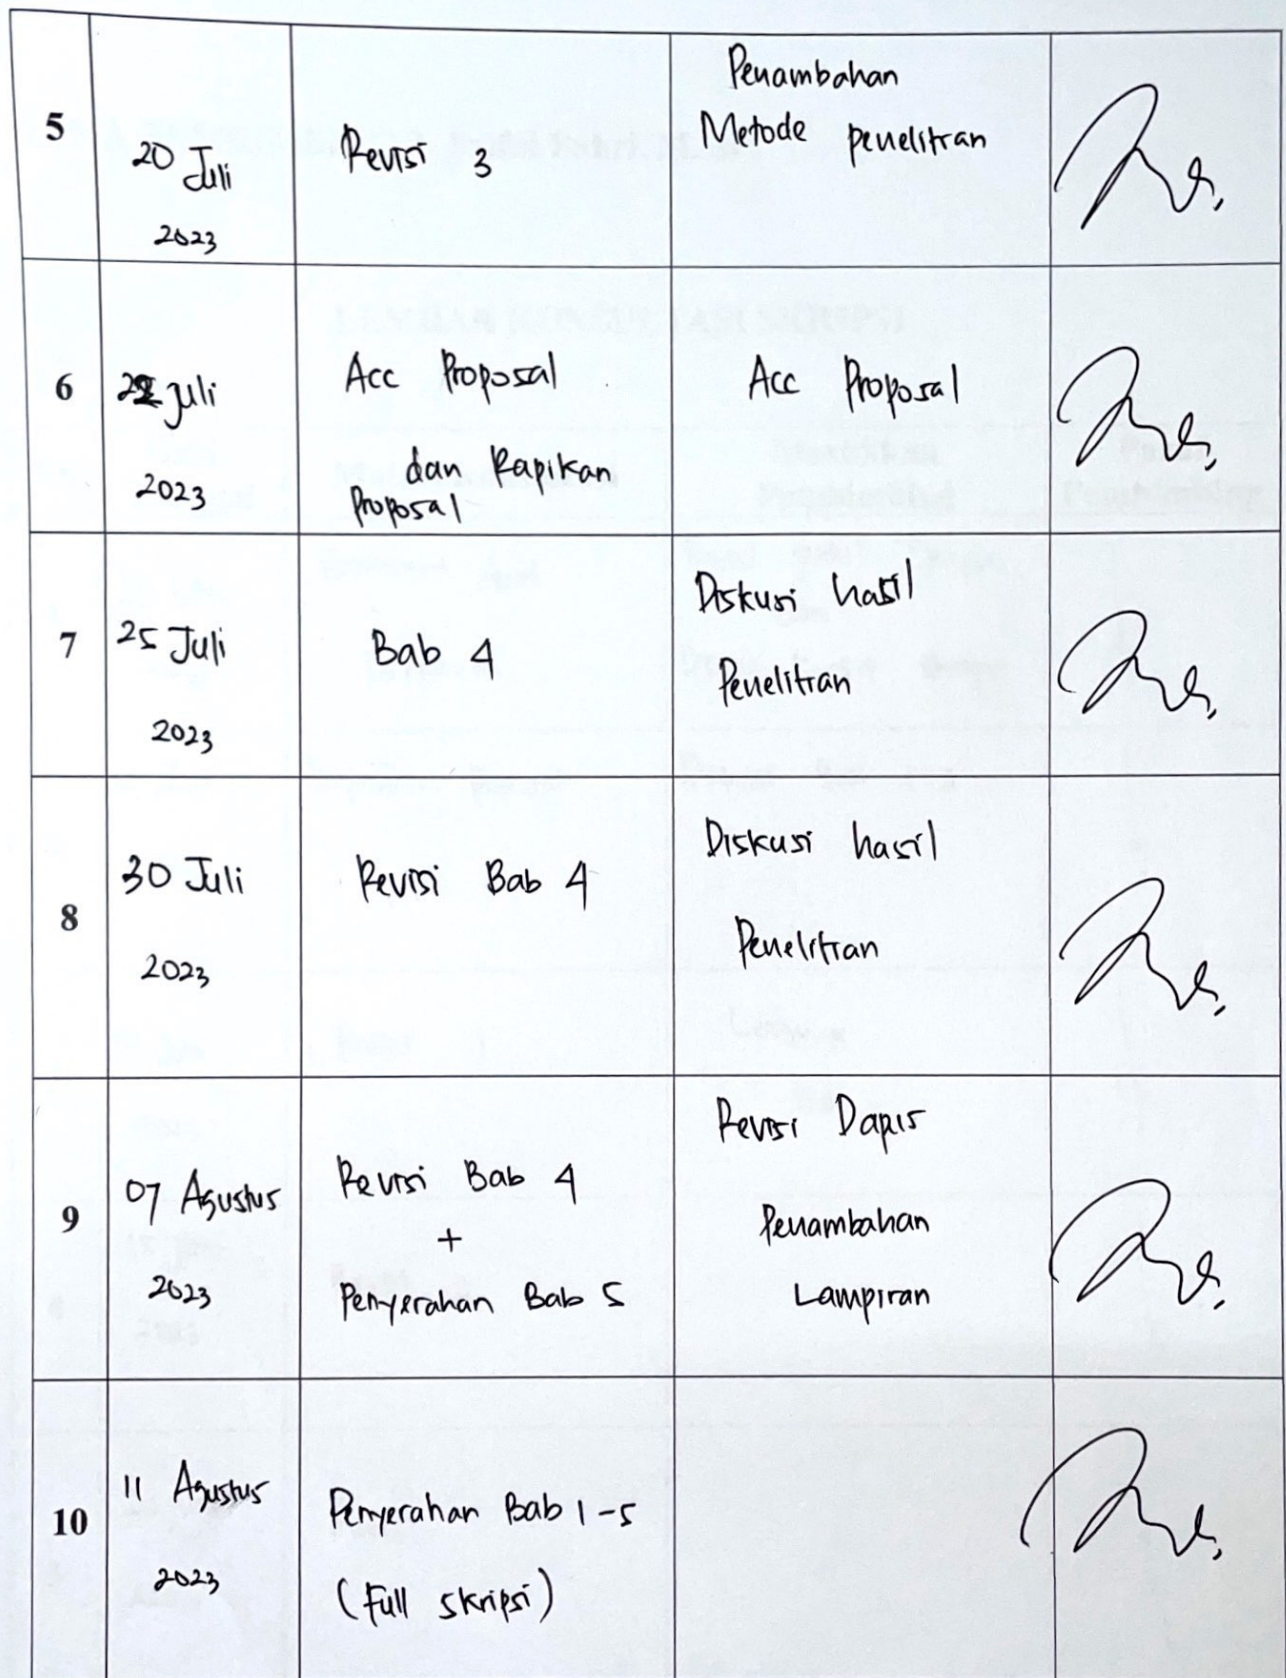 5
20 Juli
2023
Revisi 3
Penambahan
Metode penelitian
6
Juli
2023
Acc Proposal
dan Rapikan
Proposal
Acc Proposal
7
25 Juli
2023
Bab 4
Diskusi hasil
Penelitian
8
30 Juli
2023
Revisi Bab 4
Diskusi hasil
Penelitian
9
07 Agustus
2023
Revisi Bab 4
+
Penyerahan Bab 5
Revisi Dapus
Penambahan
Lampiran
10
11 Agustus
2023
Penyerahan Bab 1-5
(Full skripsi)